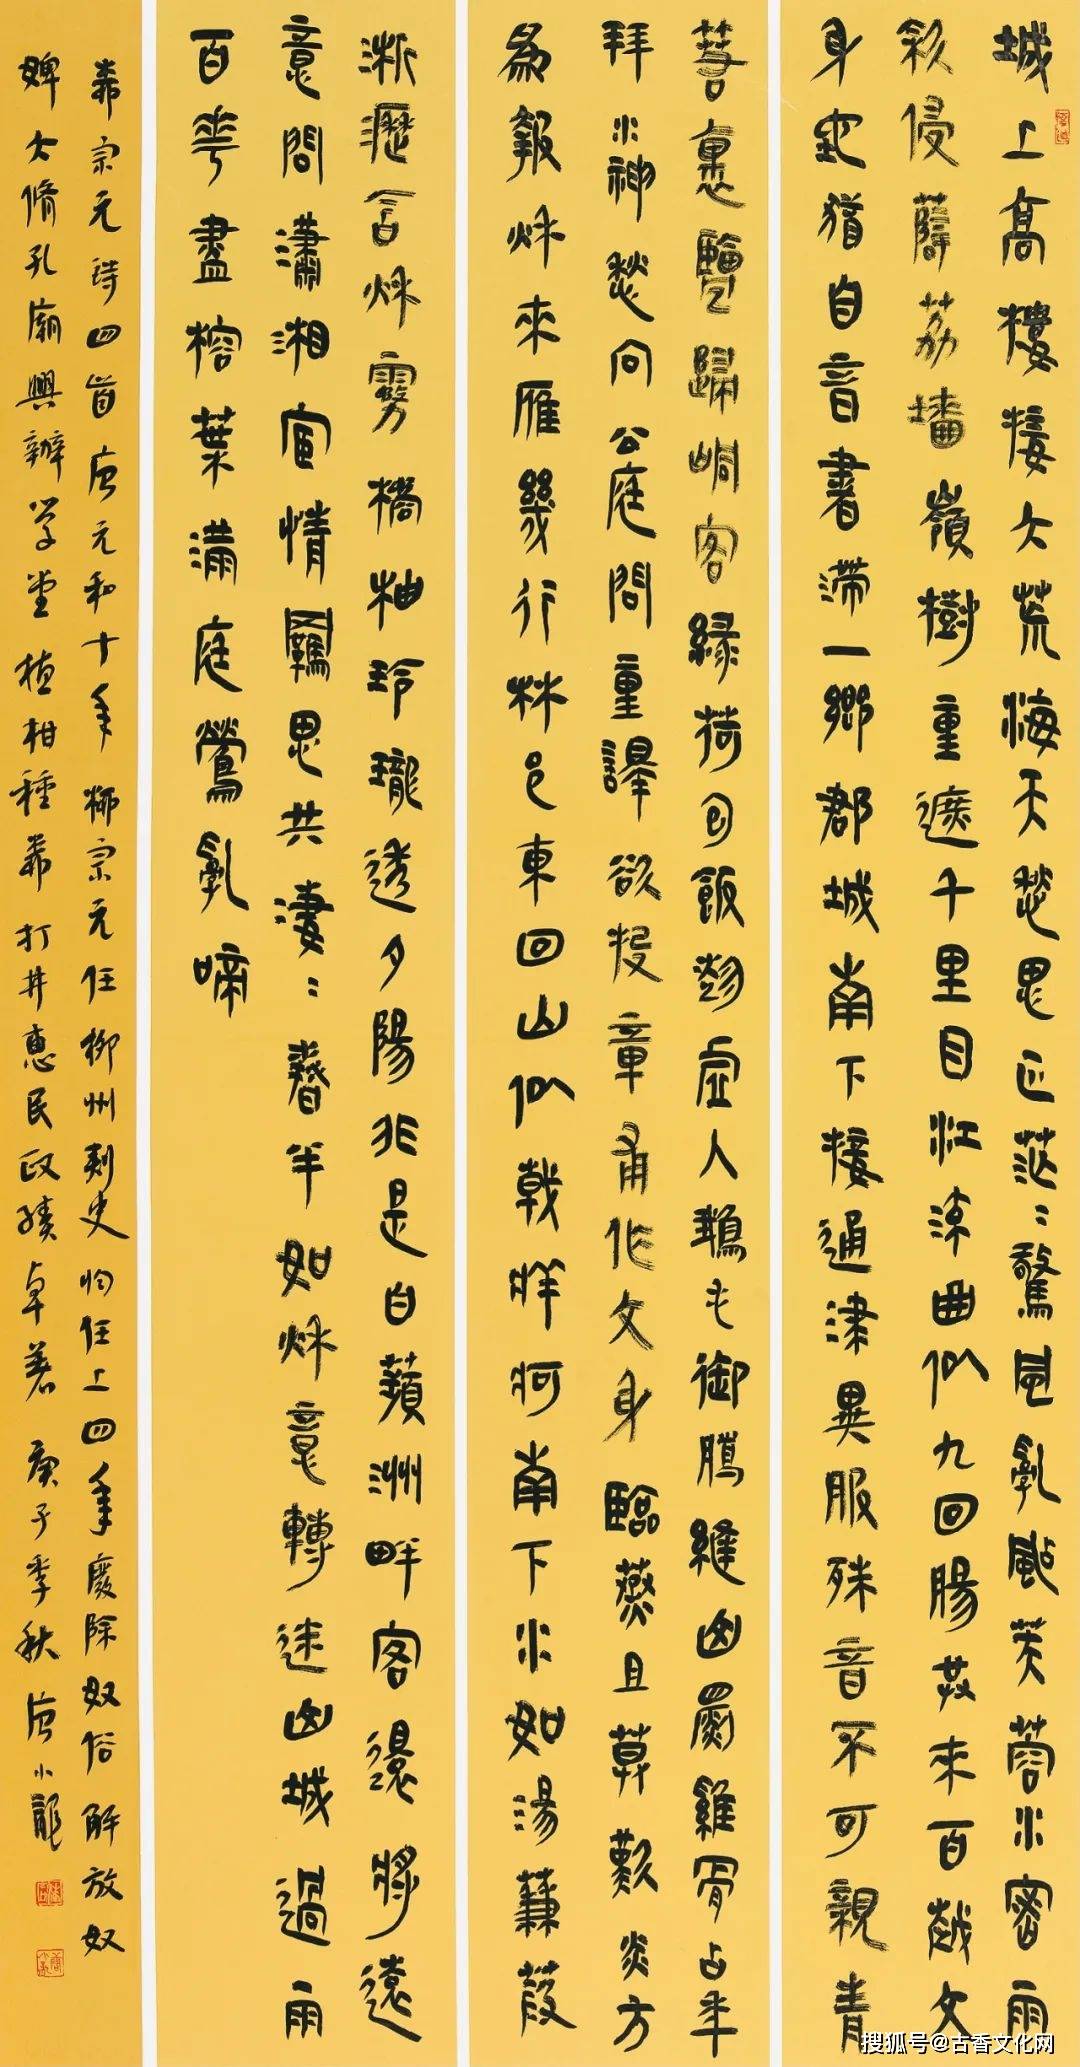 城上高樓接大荒海天愁思正茫〻驚風亂颭芙蓉水密雨
斜侵薜荔墻嶺樹重遮千里目江流曲似九回腸共來百越文
身地猶自音書滯一鄉郡城南下接通津異服殊音不可親青
箬裹鹽歸峒客緑荷包飯趁虛人鵝毛御臘縫山罽雞骨占年
拜水神愁向公庭問重譯欲投章甫作文身臨蒸且莫歎炎方
為報秋來雁幾行林邑東回山似戟牂牁南下水如湯蒹葭
淅瀝含秋霧橘柚玲瓏透夕陽非是白蘋洲畔客還將遠
意問瀟湘宦情羈思共凄〻春半如秋意轉迷山城過雨
百花盡榕葉滿庭鶯亂啼
柳宗元詩四首唐元和十年柳宗元任柳州刺史任上四年廢除奴俗解放奴
婢大修孔廟興辦學堂植柑種柳打井惠民政績卓著庚子季秋唐小龍
搜狐号@古香文化网